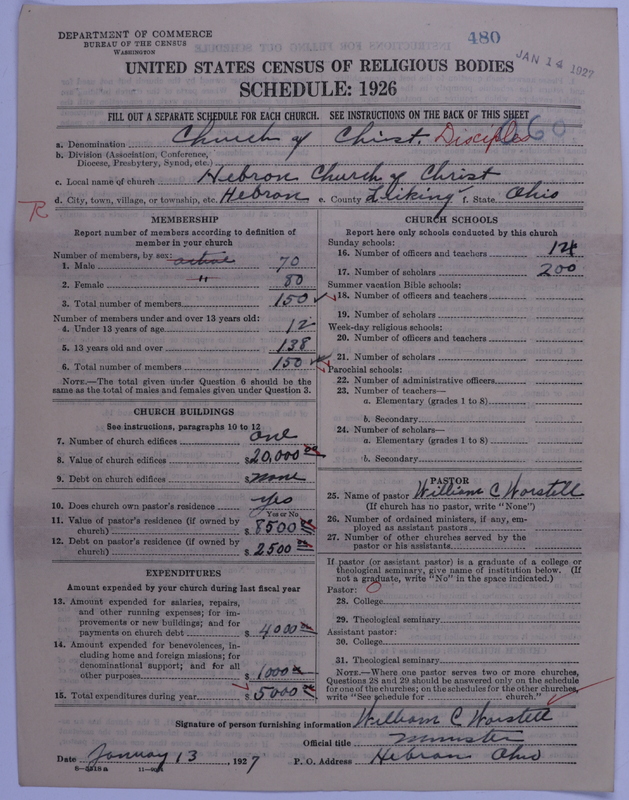 DEPARTMENT OF COMMERCE
BUREAU OF THE CENSUS
WASHINGTON
480
JAN 14 1927
UNITED STATES CENSUS OF RELIGIOUS BODIES
SCHEDULE: 1926
FILL OUT A SEPARATE SCHEDULE FOR EACH CHURCH. SEE INSTRUCTIONS ON THE BACK OF THIS SHEET
a. Denomination Church of Christ. Disciples 660
b. Division (Association, Conference, Diocese, Presbytery, Synod, etc.)
c. Local name of church Hebron Church of Christ
d. City, town, village, or township, etc. Hebron e. County Liking f. State Ohio
R
MEMBERSHIP
Report number of members according to definition of
member in your church
Number of members, by sex: active
1. Male 70
2. Female " 80
3. Total number of members 150
Number of members under and over 13 years old:
4. Under 13 years of age 12
5. 13 years old and over 138
6. Total number of members 150
NOTE.—The total given under Question 6 should be the
same as the total of males and females given under Question 3.
CHURCH BUILDINGS
See instructions, paragraphs 10 to 12
7. Number of church edifices one
8. Value of church edifices $20,000 00
9. Debt on church edifices $ none
10. Does church own pastor's residence? yes
Yes or No
11. Value of pastor's residence (if owned by
church) $ 8500 00
12. Debt on pastor's residence (if owned by
church) $ 2500 00
EXPENDITURES
Amount expended by your church during last fiscal year
13. Amount expended for salaries, repairs,
and other running expenses; for im-
provements or new buildings; and for
payments on church debt $ 4000
14. Amount expended for benevolences, in-
cluding home and foreign missions; for
denominational support; and for all
other purposes $ 1000
15. Total expenditures during year $ 5000
CHURCH SCHOOLS
Report here only schools conducted by this church
Sunday schools:
16. Number of officers and teachers 14
17. Number of scholars 200
Summer vacation Bible schools:
18. Number of officers and teachers
19. Number of scholars
Week-day religious schools:
20. Number of officers and teachers
21. Number of scholars
Parochial schools:
22. Number of administrative officers
23. Number of teachers—
a. Elementary (grades 1 to 8)
b. Secondary
24. Number of scholars—
a. Elementary (grades 1 to 8)
b. Secondary
PASTOR
25. Name of pastor William C Worstell
(If church has no pastor, write "None")
26. Number of ordained ministers, if any, em-
ployed as assistant pastors
27. Number of other churches served by the
pastor or his assistants
If pastor (or assistant pastor) is a graduate of a college or
theological seminary, give name of institution below. (If
not a graduate, write "No" in the space indicated.)
Pastor:
28. College
29. Theological seminary
Assistant pastor:
30. College
31. Theological seminary
NOTE.—Where one pastor serves two or more churches,
Questions 28 and 29 should be answered only on the schedule
for one of the churches; on the schedules for the other churches,
write "See schedule for church."
Signature of person furnishing information William C Worstell
Official title Minister
Date January 13, 1927 P. O. Address Hebron Ohio